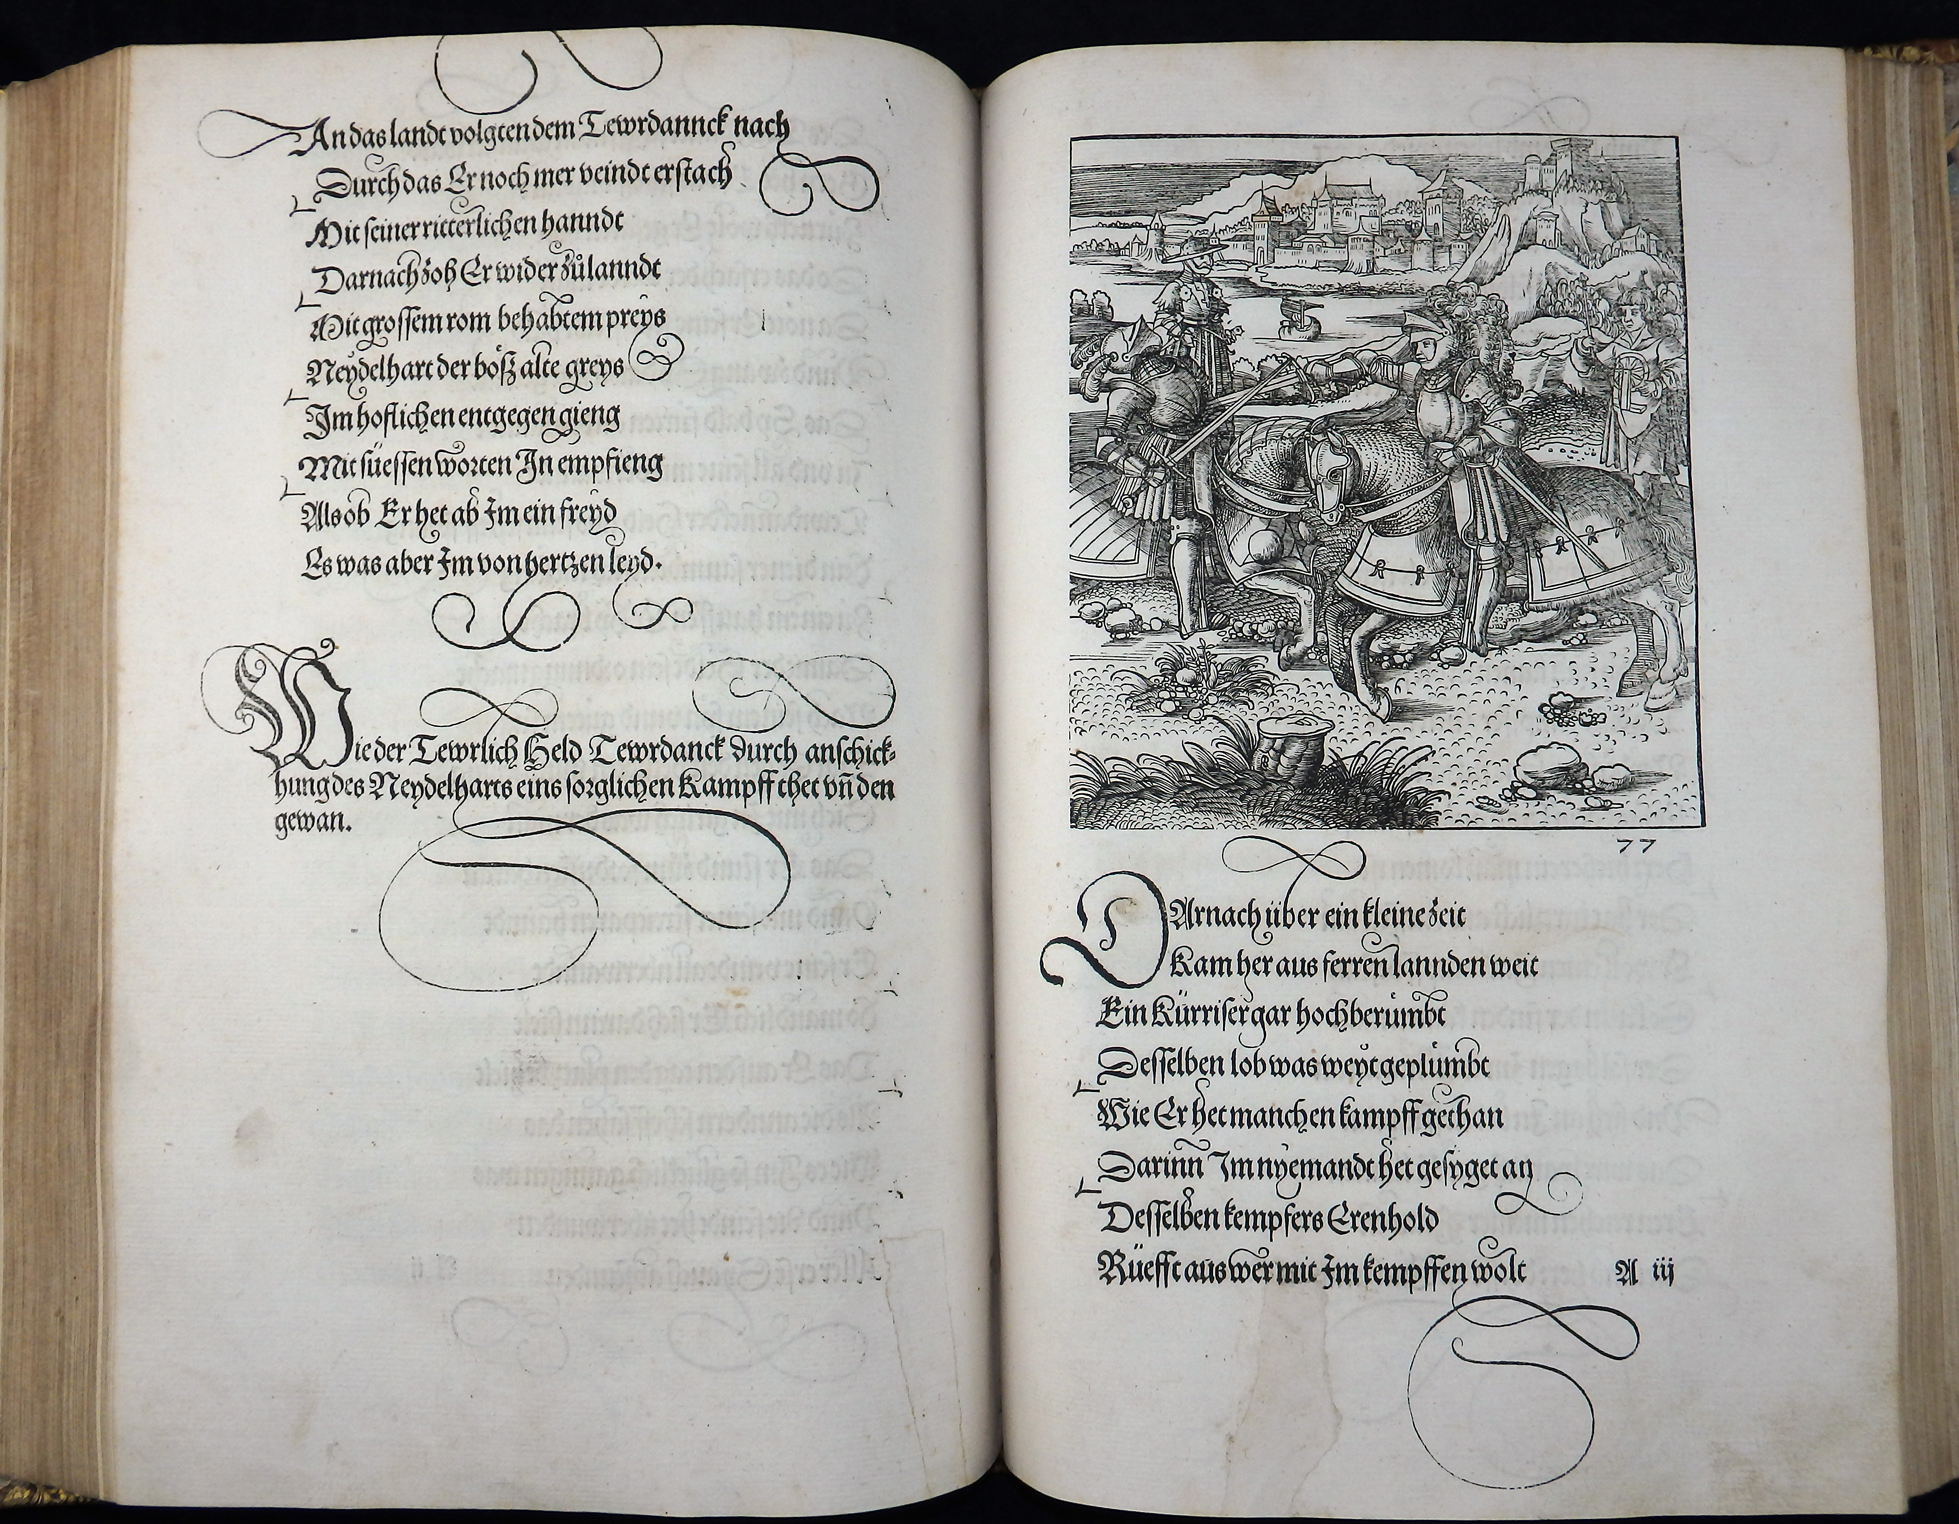 An das landt volgten dem Tewrdannck nach
Durch das Er noch mer veindt erstach
Mit seiner ritterlichen hanndt
Darnach zoh Er wider zů lanndt
Mit grossem rom behabtem preys
Neydelhart der bösz alte greys
Im hoflichen entgegen gieng
Mit süessen worten In empfieng
Als ob Er het ab Im ein freyd
Es was aber Im von hertzen leyd.
Wie der Tewrlich Held Tewrdanck durch anschick-
hung des Neydelharts eins sorglichen Kampff thet vñ den
gewan.
77
DArnach über ein kleine zeit
Kam her aus ferren lannden weit
Ein Kürriser gar hochberümbt
Desselben lob was weyt geplümbt
Wie Er het manchen kampff gethan
Darinn Im nyemandt het gesyget an
Desselben kempfers Erenhold
Rüefft aus wer mit Im kempffen wolt
A iij